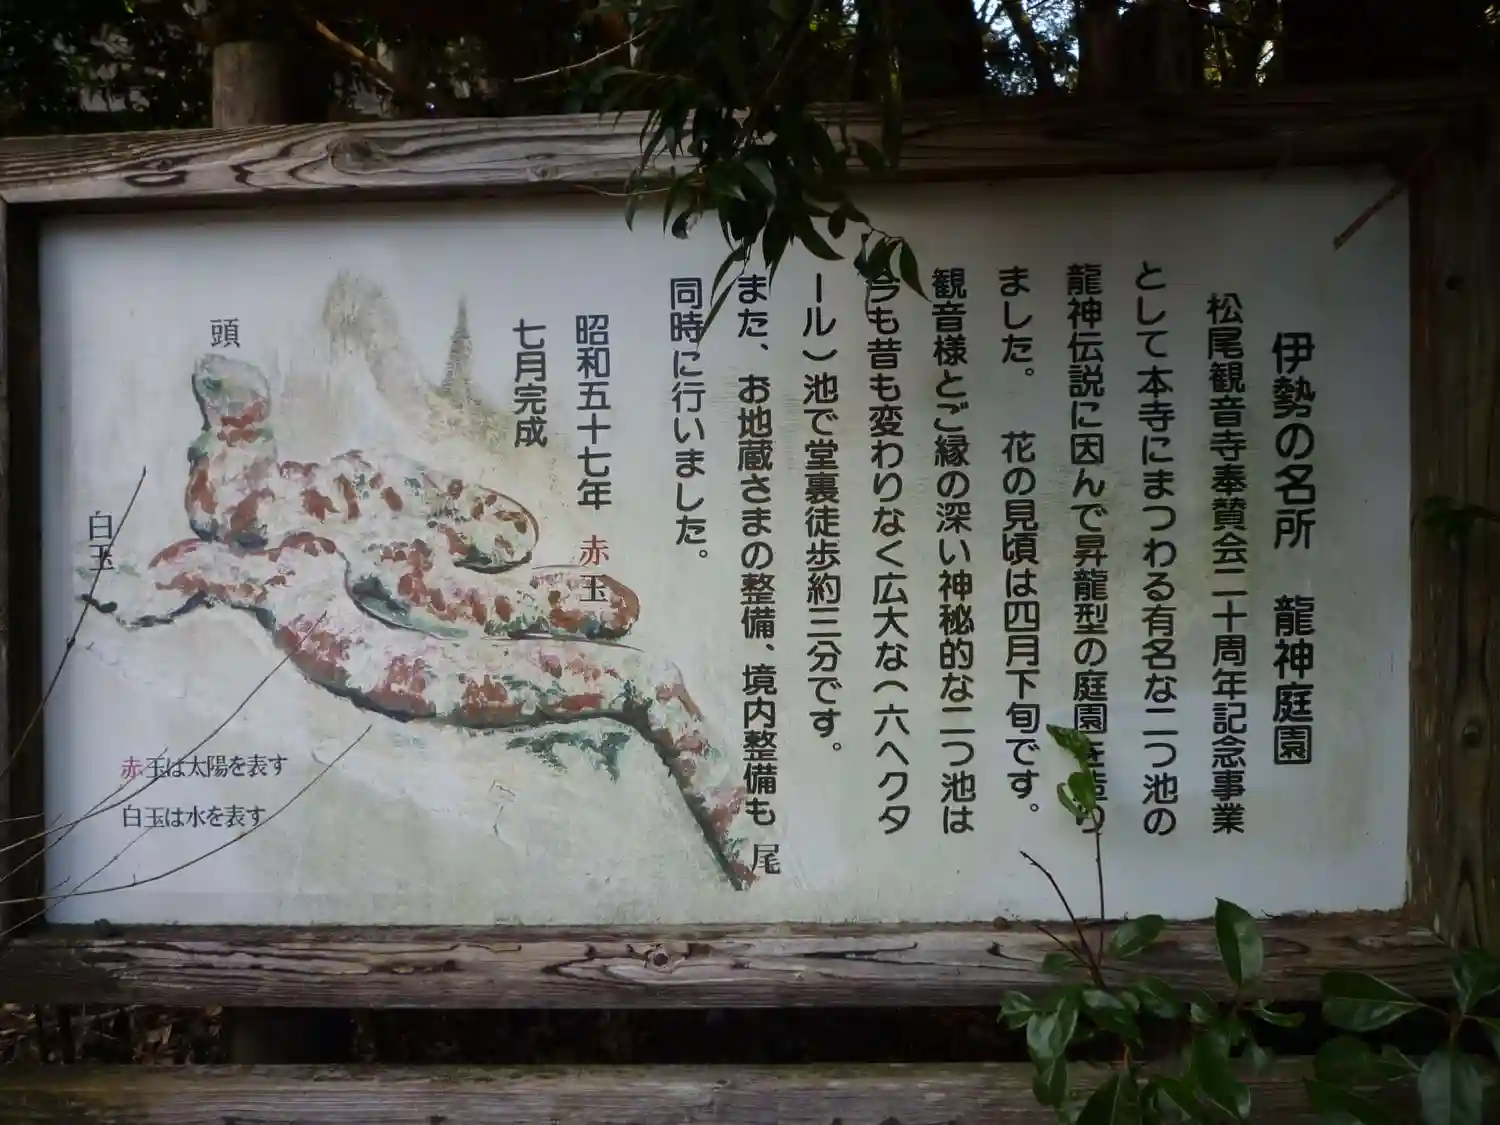 伊勢の名所　龍神庭園
松尾観音寺奉賛会二十周年記念事業
として本寺にまつわる有名な二つ池の
龍神伝説に因んで昇龍型の庭園を造り
ました。　花の見頃は四月下旬です。
観音様とご縁の深い神秘的な二つ池は
今も昔も変わりなく広大な（六ヘクタ
ール）池で堂裏徒歩約三分です。
また、お地蔵さまの整備、境内整備も
同時に行いました。
昭和五十七年
七月完成
赤玉
頭
白玉
尾
赤玉は太陽を表す
白玉は水を表す